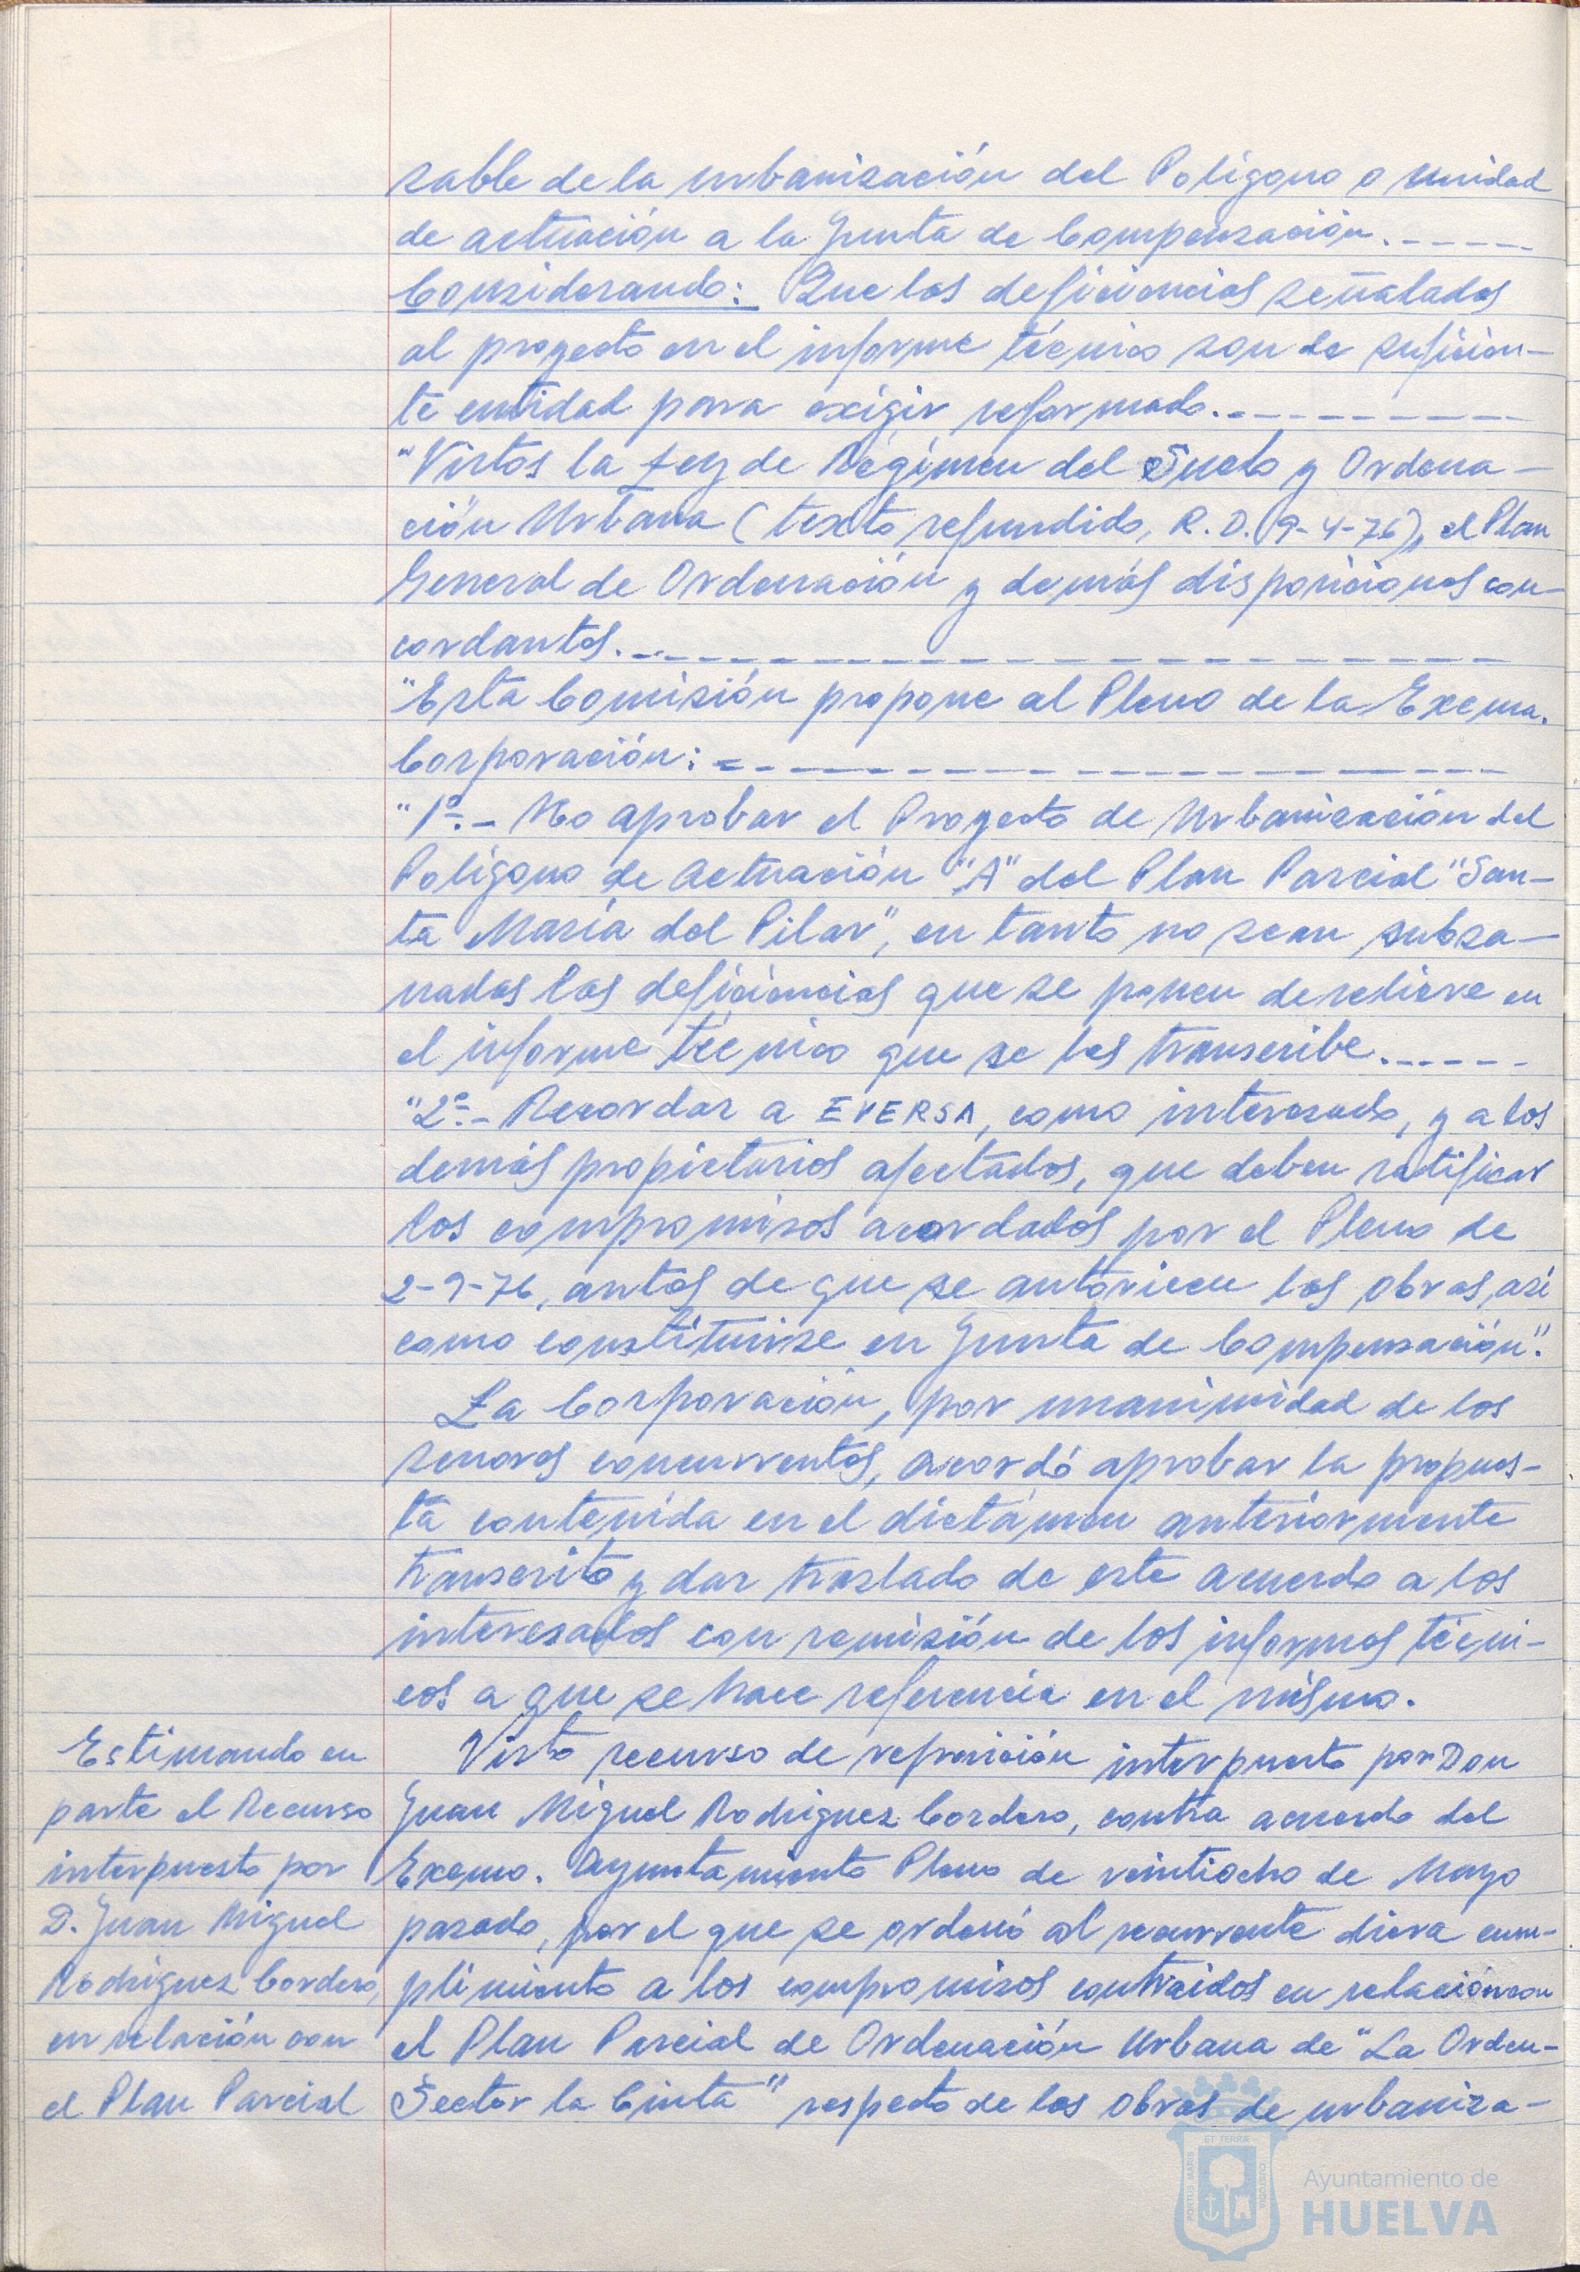 sable de la urbanización del Polígono o unidad
de actuación a la Junta de Compensación.-----
Considerando: Que las deficiencias señaladas
al proyecto en el informe técnico son de suficien-
te entidad para exigir reformado.---------
"Vistos la Ley de Régimen del Suelo y Ordena-
ción Urbana (texto refundido, R.D. 9-4-76), el Plan
General de Ordenación y demás disposiciones con-
cordantes.---------------
"Esta Comisión propone al Pleno de la Excma.
Corporación:---------------
"1º.- No aprobar el Proyecto de Urbanización del
Polígono de Actuación "A" del Plan Parcial "San-
ta María del Pilar", en tanto no sean subsa-
nadas las deficiencias que se ponen de relieve en
el informe técnico que se les transcribe.-----
"2º.- Recordar a EVERSA, como interesado, y a los
demás propietarios afectados, que deben ratificar
los compromisos acordados por el Pleno de
2-9-76, antes de que se autoricen las obras, así
como constituirse en Junta de Compensación".
La Corporación, por unanimidad de los
señores concurrentes, acordó aprobar la propues-
ta contenida en el dictámen anteriormente
transcrito y dar traslado de este acuerdo a los
interesados con remisión de los informes técni-
cos a que se hace referencia en el mismo.
Estimando en
parte el Recurso
interpuesto por
D. Juan Miguel
Rodriguez Cordero,
en relación con
el Plan Parcial
Visto recurso de reposición interpuesto por Don
Juan Miguel Rodriguez Cordero, contra acuerdo del
Excmo. Ayuntamiento Pleno de veintiocho de Mayo
pasado, por el que se ordenó al recurrente diera cum-
plimiento a los compromisos contraidos en relación con
el Plan Parcial de Ordenación Urbana de "La Orden-
Sector la Cinta" respecto de las obras de urbaniza-
PORTUS MARIS
ET TERRAE
CUSTODIA
Ayuntamiento de
HUELVA